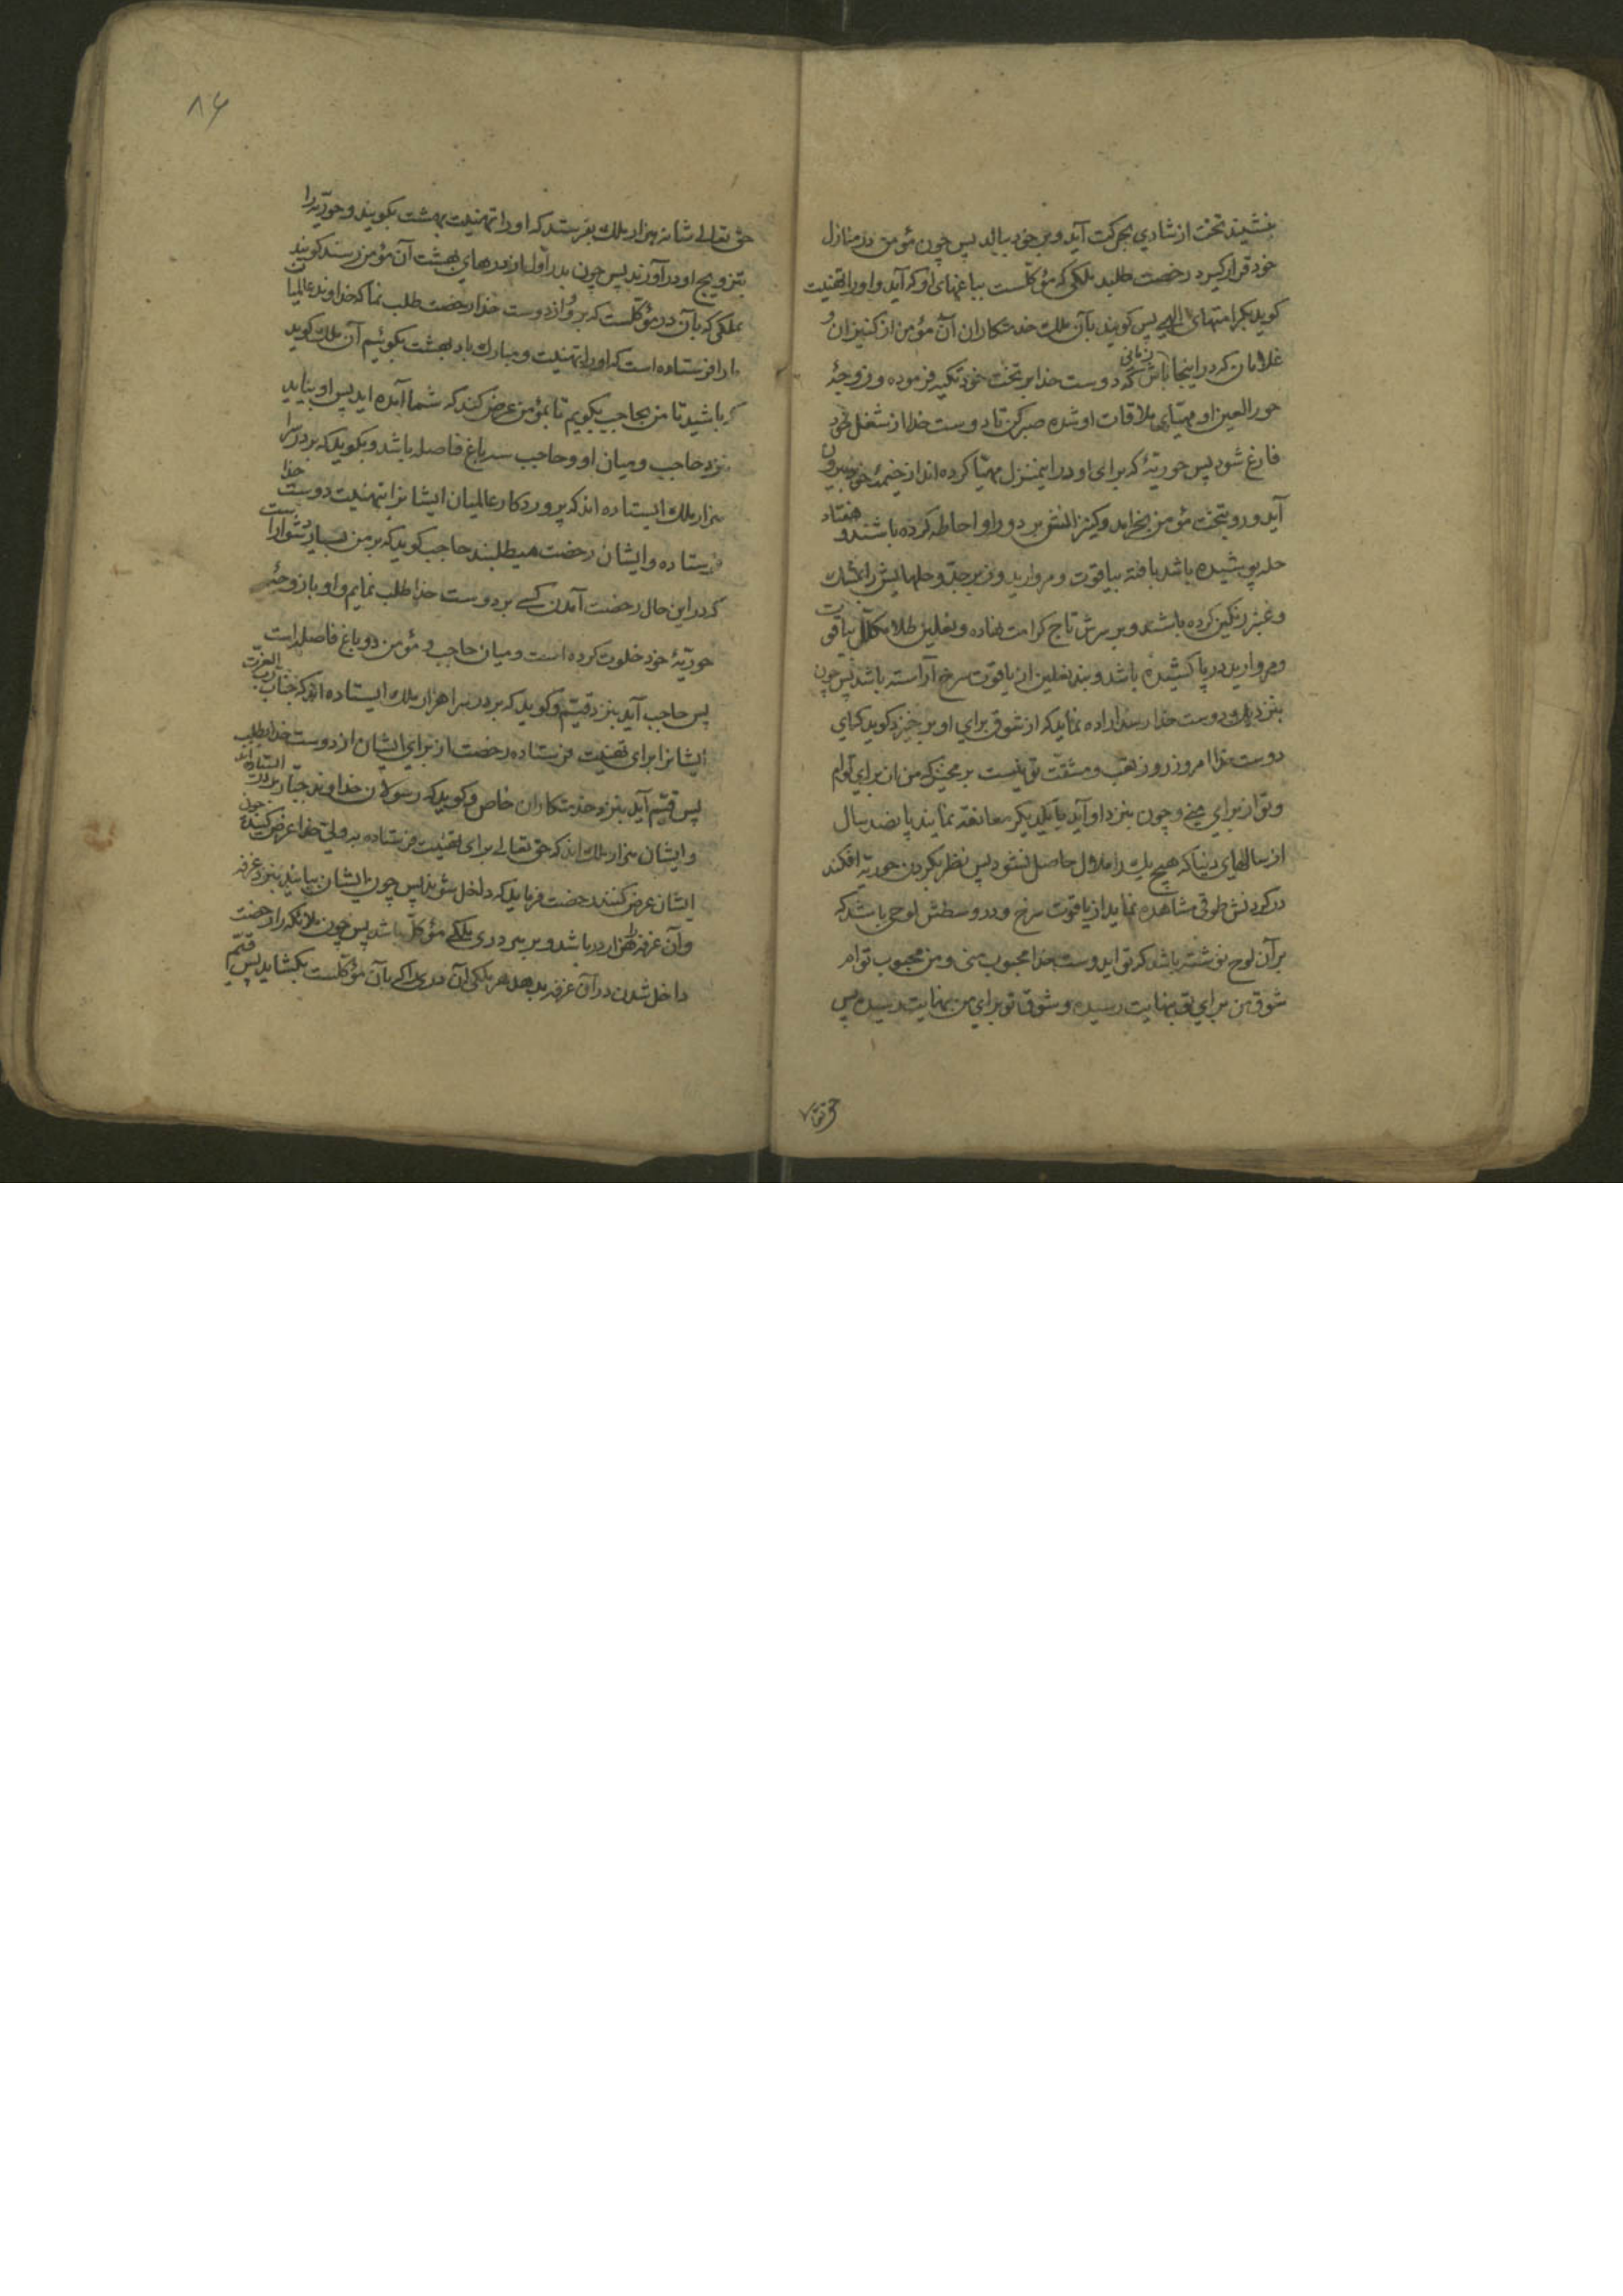 بنشیند تخت از شادی بحرکت آید و بر خود ببالد پس چون مؤمن در منازل
خود قرار کیرد رخصت طلبد ملکی که مؤکلست بباغهای او که آید و او را تهنیت
کوید بکرامتهای الهی پس کویند بآن ملك خدمتکاران آن مؤمن از کنیزان و
غلامان که در اینجا باش زمانی که دوست خدا بر تخت خود تکیه فرموده و زوجهٔ
حور العین او مهیّای ملاقات او شده صبر کن تا دوست خدا از شغل خود
فارغ شود پس حوریّهٔ که برای او در اینمنزل مهیّا کرده اند از خیمهٔ خود بیرون
آید و رو بتخت مؤمن بخرامد و کنیزانش بر دور او احاطه کرده باشند و هفتاد
حله پوشیده باشد بافته بیاقوت و مروارید و زبرجد و حلهایش را بمشك
و عنبر رنکین کرده باشند و بر سرش تاج کرامت نهاده و نعلین طلا مکلل بیاقوت
و مروارید در پا کشیده باشد و بند نعلین از یاقوت سرخ آراسته باشد پس چون
بنزدیك دوست خدا رسد اراده نماید که از شوق برای او برخیزد کوید که ای
دوست خدا امروز روز تعب و مشقّت تو نیست بر مخیز که من از برای توام
و تو از برای منی و چون بنزد او آید با یکدیکر معانقه نمایند پانصد سال
از سالهای دنیا که هیچ یك را ملال حاصل نشود پس نظر بکردن حوریّه افکند
در کردنش طوقی مشاهده نماید از یاقوت سرخ و در وسطش لوحی باشد که
بر آن لوح نوشته باشد که تو ایدوست خدا محبوب منی و من محبوب توام
شوق من برای تو بنهایت رسیده و شوق تو برای من بنهایت رسیده پس
حق تعالی
۸۶
حق تعالی شانه هزار ملك بفرستد که او را تهنیت بهشت بکویند و حوریّه را
بتزویج او در آورند پس چون بدر اوّل از درهای بهشت آن مؤمن رسند کویند
بملکی که بآن در مؤکلست که برو و از دوست خدا رخصت طلب نما که خداوند عالمیان
ما را فرستاده است که او را تهنیت و مبارك باد بهشت بکوئیم آن ملك کوید
که باشید تا من بحاجب بکویم تا بمؤمن عرض کند که شما آمده اید پس او بیاید
بنزد حاجب و میان او و حاجب سه باغ فاصله باشد و بکوید که بر در سرا
هزار ملك ایستاده اند که پروردکار عالمیان ایشانرا بتهنیت دوست خدا
فرستاده و ایشان رخصت میطلبند حاجب کوید که بر من بسیار دشوار است
که در این حال رخصت آمدن کسی بر دوست خدا طلب نمایم و او با زوجهٔ
حوریّهٔ خود خلوت کرده است و میان حاجب و مؤمن دو باغ فاصله است
پس حاجب آید بنزد قیّم و کوید که بر در سرا هزار ملك ایستاده اند که جناب ربّ العزّت
ایشانرا برای تهنیت فرستاده رخصت از برای ایشان از دوست خدا بطلب
پس قیّم آید بنزد خدمتکاران خاص و کوید که رسولان خداوند جبّار بر در ایستاده اند
و ایشان هزار ملك اند که حق تعالی برای تهنیت فرستاده بولیّ خدا عرض کنید چون
ایشان عرض کنند رخصت فرماید که داخل شوند پس چون ایشان بیایند بنزد غرفه
و آن غرفه را هزار در باشد و بر هر دری ملکی مؤکّل باشد پس چون ملائکه را رخصت
داخل شدن در آن غرفه بدهد هر ملکی آن دری را که بآن مؤکّلست بکشاید پس قیّم